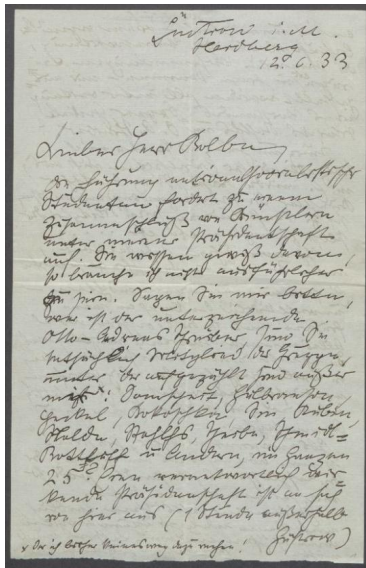 Güstrow i. M.
Heidberg
12. 6. 33
Lieber Herr Kolbe,
die Führung nationalsozialistischer
Studenten fordert zu einem
Zusammenschluß von Künstlern
unter meiner Präsidentschaft
auf. Sie wissen gewiß davon,
so brauche ich nicht ausführlicher
zu sein. Sagen Sie mir bitte,
wer ist der unterzeichnende
Otto-Andreas Schreiber. Sind Sie
tatsächlich Mitglied der Gruppe,
unter der aufgezählt sind außer
Domscheit,
Heckel, Kokoschka,
Nolde, Rohlfs, Scheibe, Schmidt-
Rottluff u Andern, im Ganzen
25? Eine verantwortlich wir-
kende Präsidentschaft ist an sich
von hier aus (1 Stunde außerhalb
Güstrow)
x der ich bisher keineswegs dazu rechne!